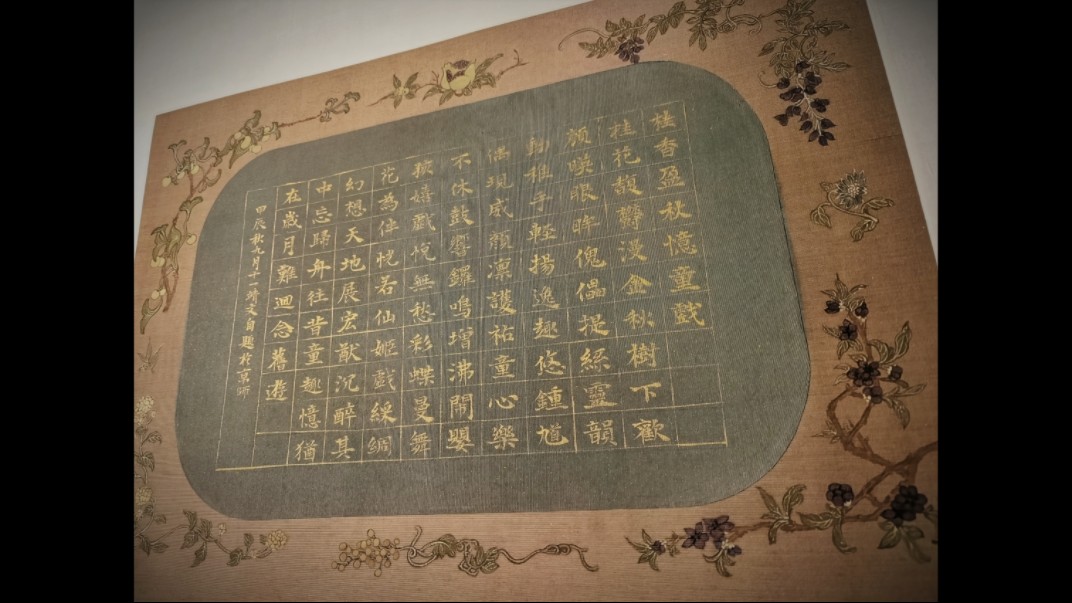 桂香盈秋憶童戲
桂花馥鬱漫金秋樹下歡
顏暎眼眸傀儡提絲靈韻
動稚手輕揚逸趣悠鍾馗
偶現威顏凜護祐童心樂
不休鼓響鑼鳴增沸鬧嬰
孩嬉戲悅無愁彩蝶曼舞
花為伴恍若仙姬戲綵綢
幻想天地展宏猷沉醉其
中忘歸舟往昔童趣憶猶
在歲月難迴念舊遊
甲辰秋九月十一靖文自題於京師